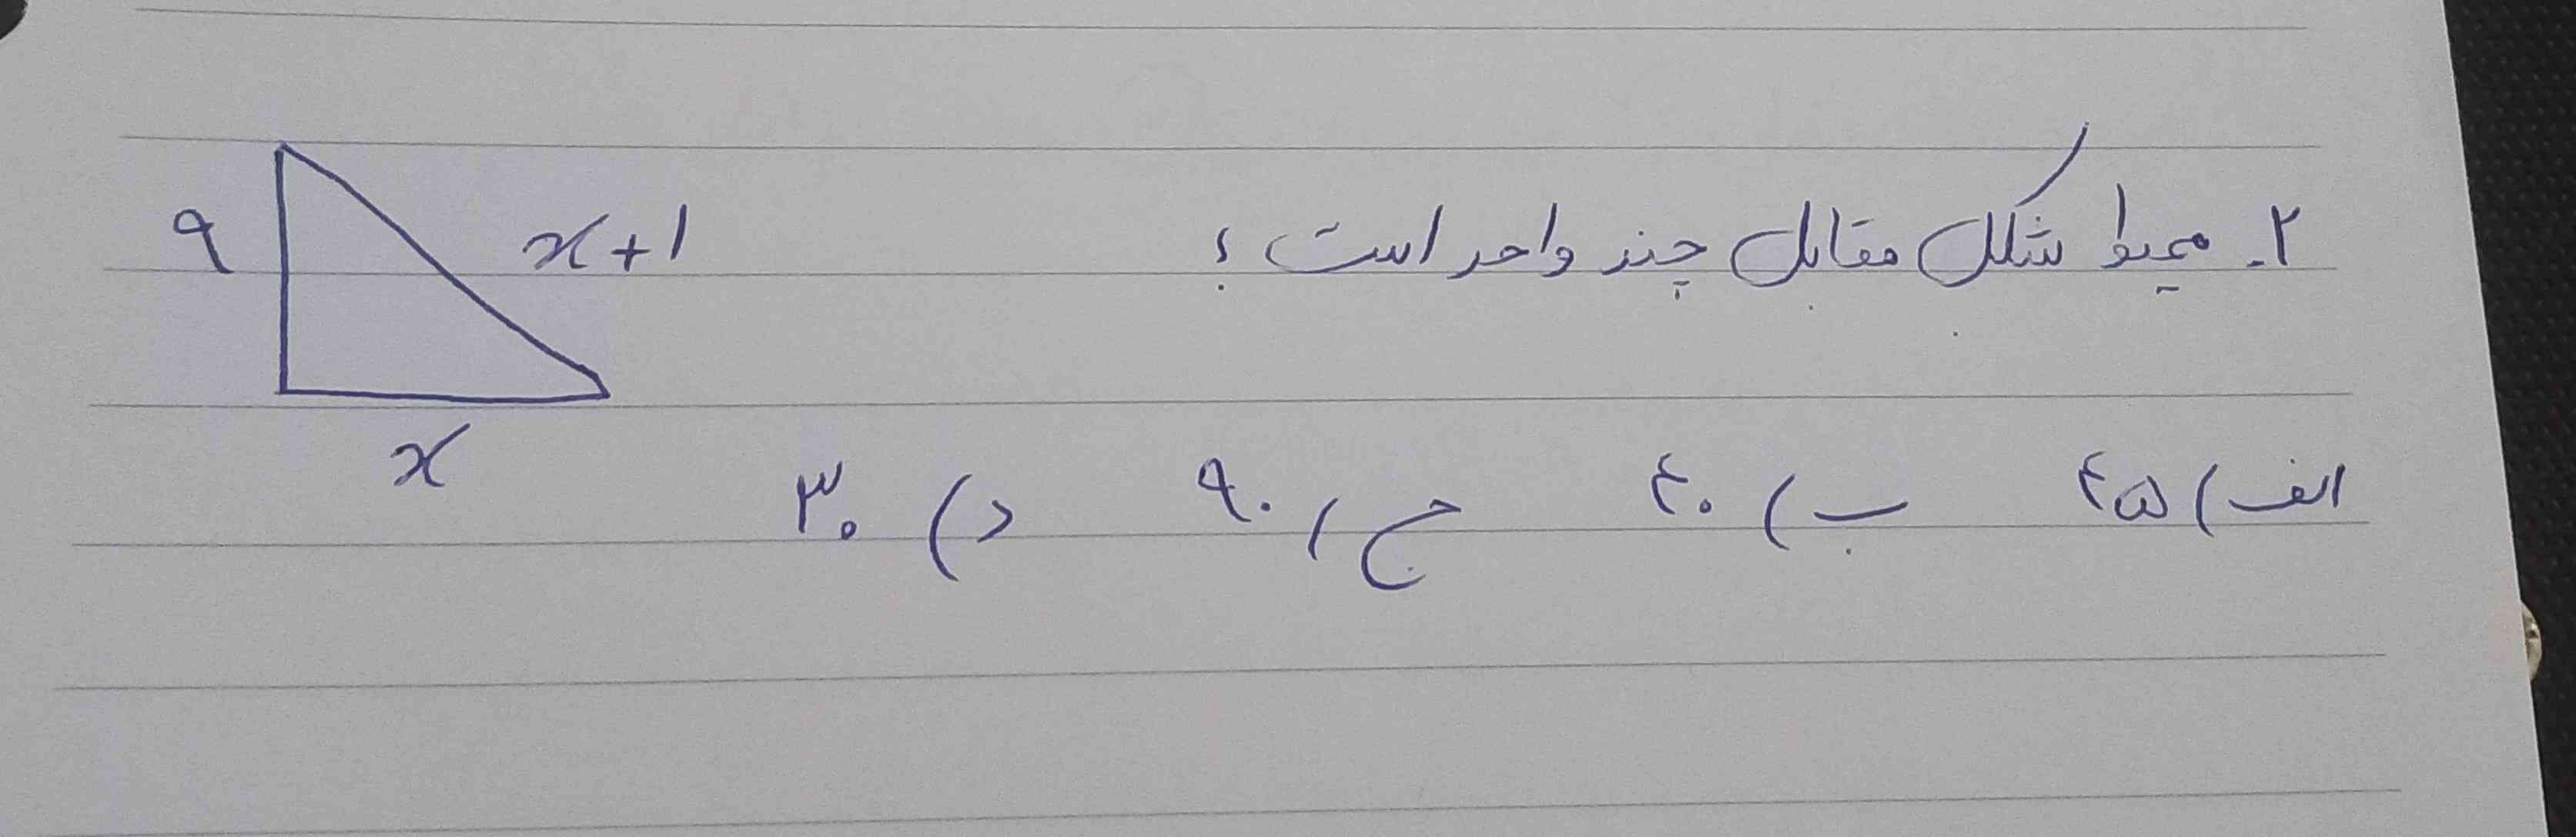 ۲. محیط شکل مقابل چند واحد است؟
۹
x+۱
x
الف) ۴۵ ب) ۴۰ ج) ۹۰ د) ۳۰